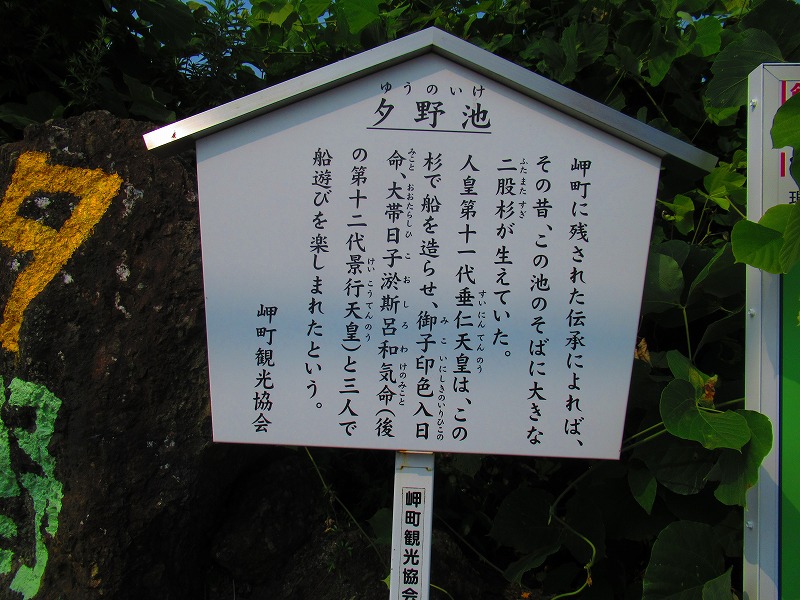 ゆうのいけ
夕野池
岬町に残された伝承によれば、
その昔、この池のそばに大きな
ふたまたすぎ
二股杉が生えていた。
すいにんてんのう
人皇第十一代垂仁天皇は、この
みこいにしきのいりひこの
杉で船を造らせ、御子印色入日
みことおおたらしひこおしろわけのみこと
命、大帯日子淤斯呂和気命(後
けいこうてんのう
の第十二代景行天皇)と三人で
船遊びを楽しまれたという。
岬町観光協会
岬町観光協会